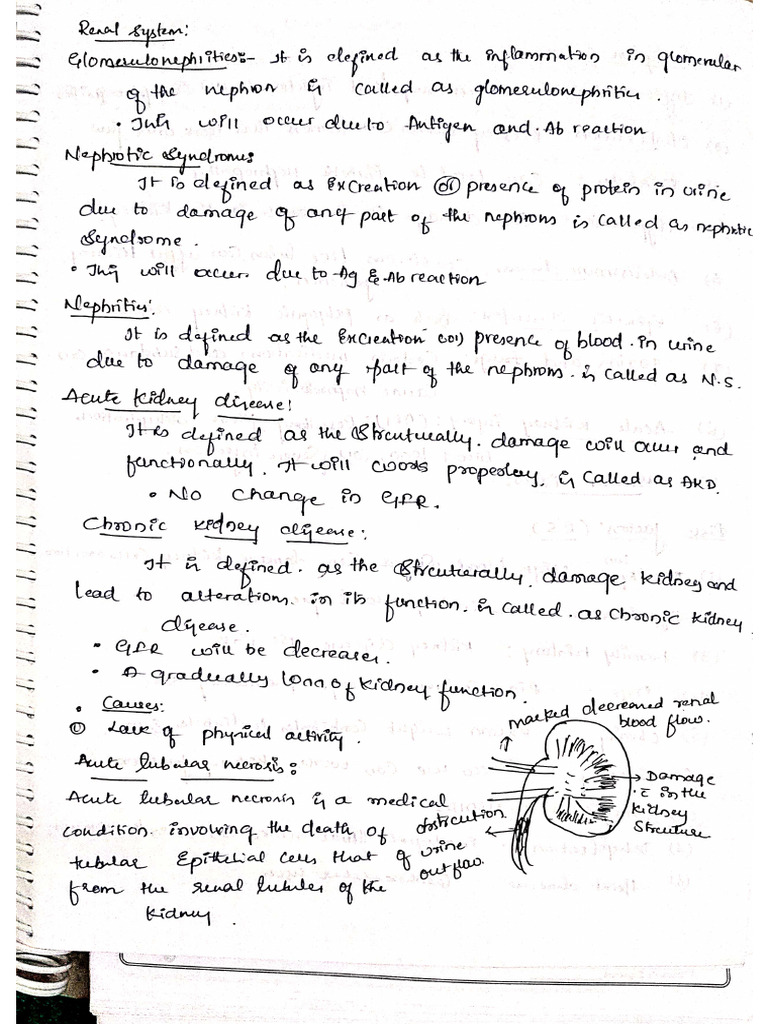 Renal System:
Glomerulonephrities:- It is defined as the inflammation in glomerular
of the nephron is called as glomerulonephrities.
• This will occur due to Antigen and Ab reaction
Nephrotic Syndrome:
It is defined as Excreation (or) presence of protein in urine
due to damage of any part of the nephrons is called as nephrotic
Syndrome.
• This will occur due to Ag & Ab reaction
Nephrities:
It is defined as the Excreation (or) presence of blood in urine
due to damage of any part of the nephrons is called as N.S.
Acute Kidney disease:
It is defined as the Strcuturally damage will occur and
functionally It will works properley is called as AKD.
• No change in GFR.
Chronic kidney disease:
It is defined as the Strcuturally damage kidney and
lead to alterations in its function is called as Chronic Kidney
disease.
• GFR will be decreases.
• A gradually loss of kidney function.
• Causes:
① Lack of physical activity.
Acute tubular necrosis:
Acute tubular necrosis is a medical
condition involving the death of
tubular Epithelial cells that of
from the renal tubules of the
kidney.
marked decreased renal
blood flow.
Damage
c̄ in the
kidney
Strcuture
obstrcution
of urine
out flow.